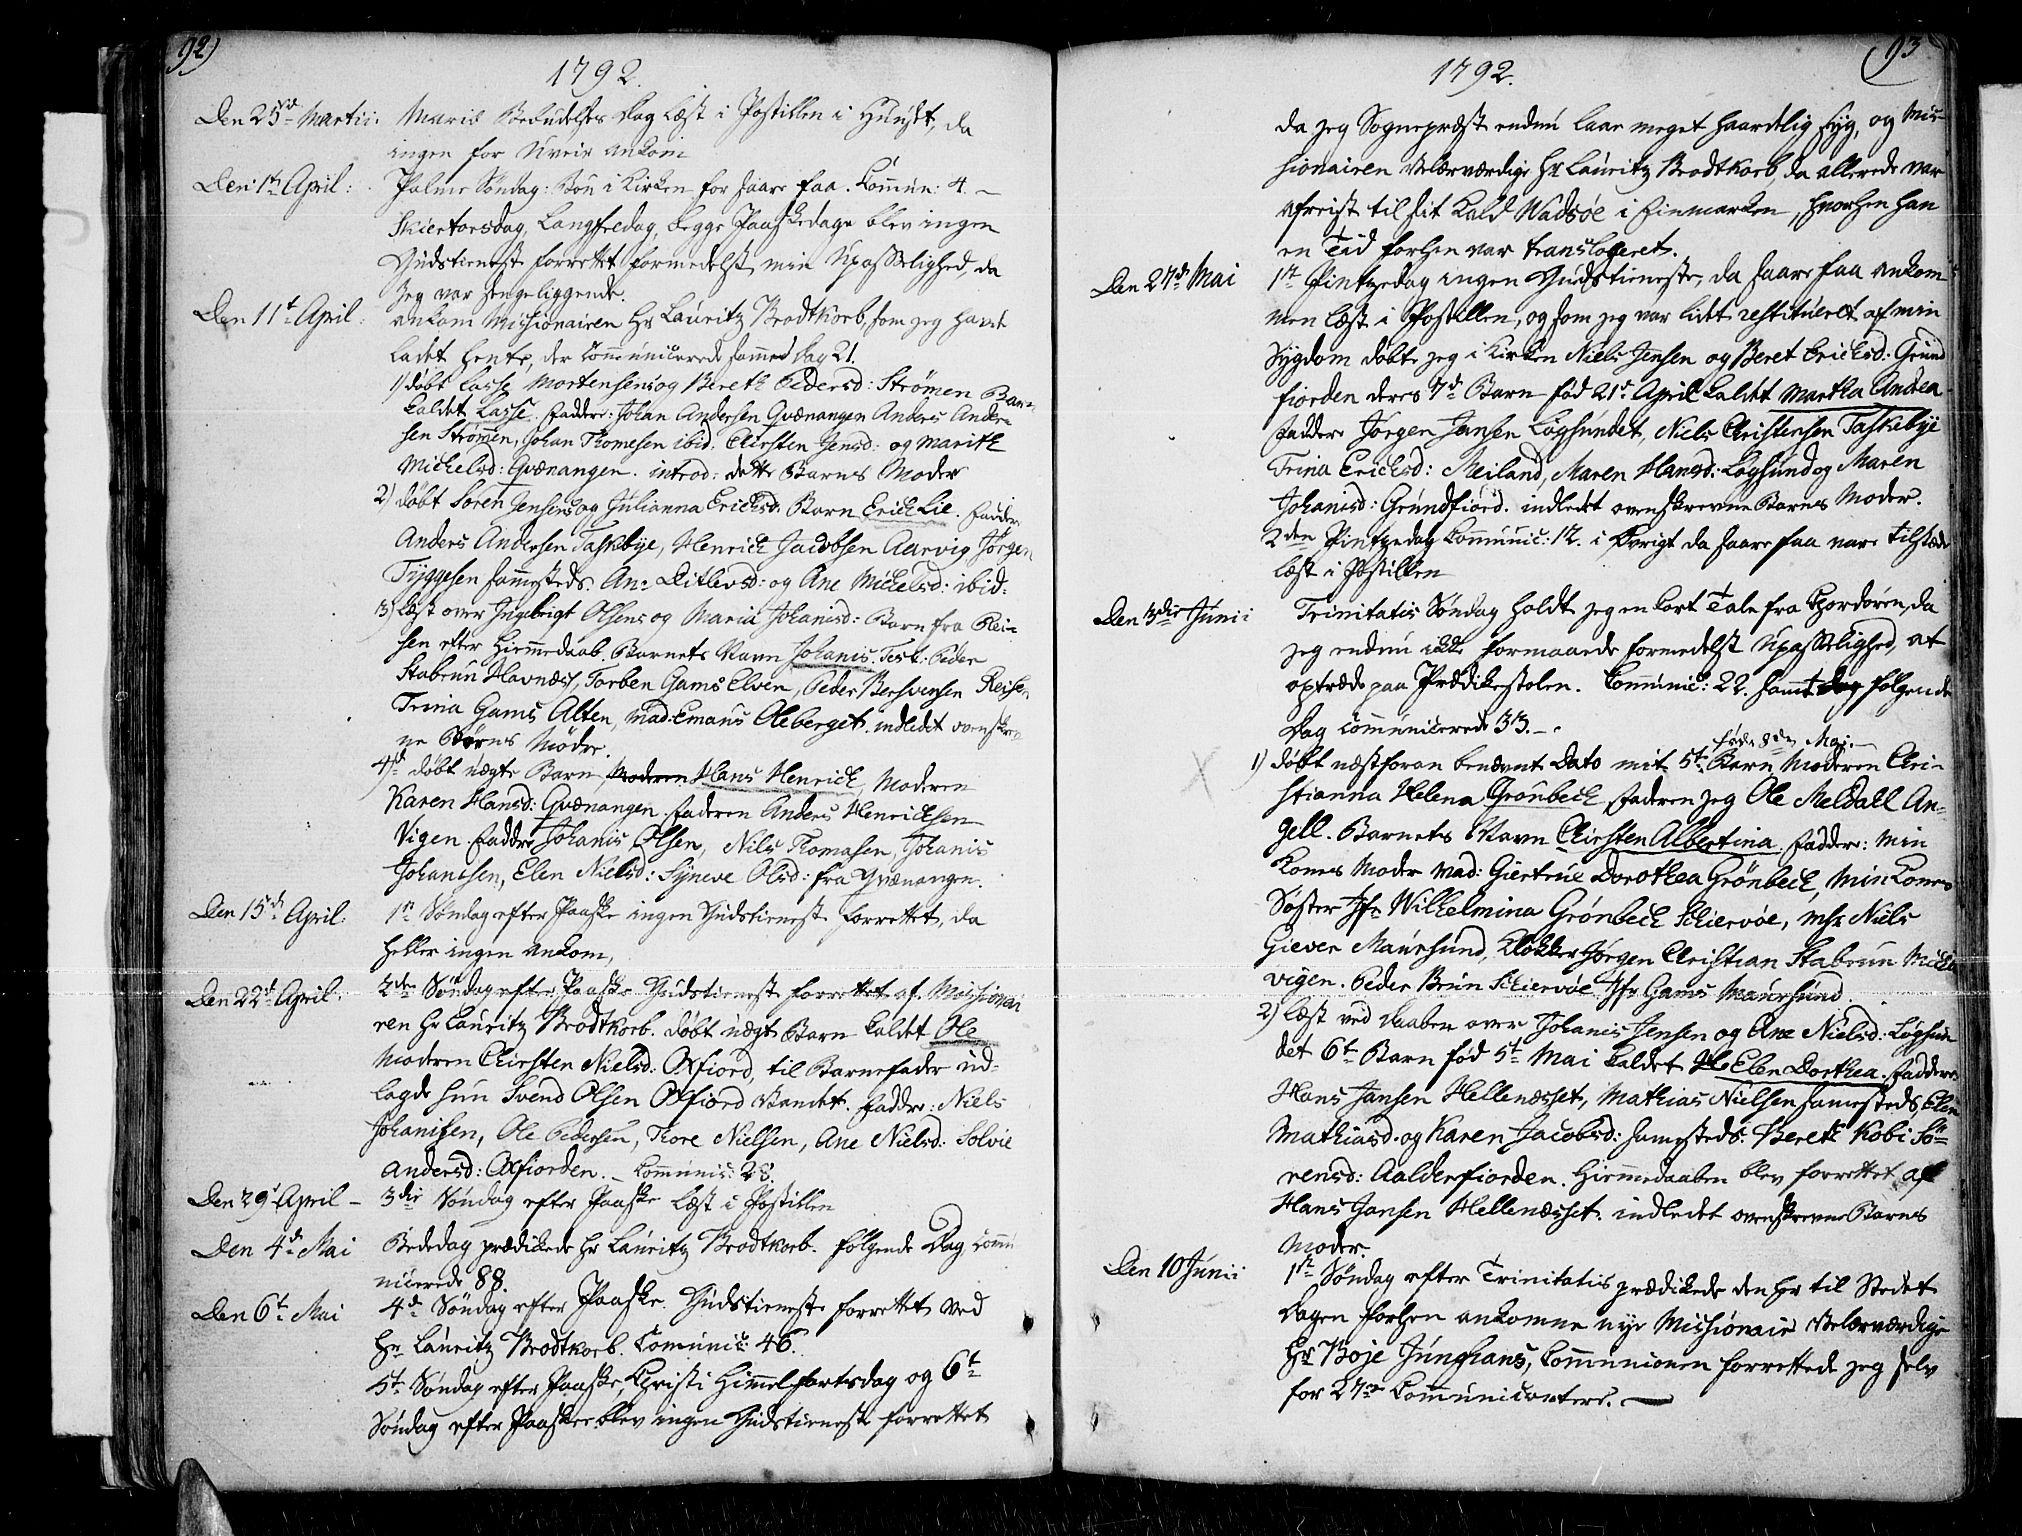 92)
1792.
Den 25de Martii. Mariæ Bebudelses Dag læst i Postillen i Huuset, da
ingen for Uveir ankom
Den 1te April: Palme Søndag: Bøn i Kirken for saare faa. Commun: 4. –
Skiertorsdag, Langfredag, begge Paaskedage blev ingen
Gudstieneste forrettet formedelst min Upasselighed, da
jeg var sengeliggende.
Den 11te April: ankom Missionairen Hr Lauritz Brodtkorb, som jeg havde
ladet hente, der Communicerede samme Dag 21.
1) døbt Lasse Mortensens og Bereth Pedersd: Strømen Barn
kaldet Lasse. Faddere: Johan Andersen Qvænangen Anders Ander-
sen Strømen, Johan Thomesen ibid. Chirsten Jensd: og Marith
Michelsd: Qvænangen. introd: dette Barns Moder
2) døbt Søren Jensens og Julianna Erichsd: Barn Erich Lie. Faddere
Anders Andersen Taskebye, Henrich Jacobsen Aarvig, Jørgen
Tyggesen sammesteds. An: Ditlevsd: og Ane Michelsd: ibid:
3) læst over Ingebrigt Olsens og Maria Johanisd: Barn fra Rei-
sen efter Hiemmedaab. Barnets Navn Johanis. Test: Peder
Stabrun Havnæs, Torben Gams Elven, Peder Bersvensen Reisen
Trina Gams Alten, Mad: Emaus Oleberget. indledet ovenskrev-
ne Børns Mødre.
4de døbt uægte Barn, Moderen Hans Henrich, Moderen
Karen Hansd: Qvænangen. Faderen Anders Henricksen
Vigen. Faddre Johanis Olsen, Nils Thomasen, Johanis
Johansen, Elen Nielsd: Syneve Olsd: fra Qvænangen.
Den 15de April: 1te Søndag efter Paaske ingen Gudstieneste forrettet, da
heller ingen ankom,
Den 22de April: 2den Søndag efter Paaske Gudstieneste forrettet af Missionai
ren Hr Lauritz Brodtkorb. døbt uægt Barn kaldet Ole
Moderen Chirsten Nielsd: Oxfiord, til Barnefader ud-
lagde hun Svend Olsen Oxfiord Bandet. Faddre: Niels
Johanisen, Ole Pedersen, Thore Nielsen, Ane Nielsd: Solvie
Andersd: Oxfiorden. – Communic: 28.
Den 29de April – 3die Søndag efter Paaske læst i Postillen
Den 4de Mai Bededag prædikede Hr Lauritz Brodtkorb. følgende Dag Commu
nicerede 88.
Den 6te Mai 4de Søndag efter Paaske. Gudstieneste forrettet ved
Hr Lauritz Brodtkorb. Comunic: 46.
5te Søndag efter Paaske, Christi Himmelfartsdag og 6te
Søndag efter Paaske blev ingen Gudstieneste forrettet
93
1792.
da jeg Sognepræst endnu laae meget haardelig syg, og Mis-
sionairen Velærværdige Hr Lauritz Brodtkorb, da allerede var
afreist til sit Kald Wadsøe i Finmarken, hvorhen han
en Tid forhen var transloceret.
Den 27de Mai 1te Pintzedag ingen Gudstieneste, da saare faa ankom
men læst i Postillen, og som jeg var lidet restitueret af min
Sygdom døbte jeg i Kirken Niels Jensen og Beret Erichsd: Grund
fiorden deres 7de Barn fød 21de April kaldet Martha Andrea
Faddere Jørgen Jansen Løgsundet, Niels Christensen Taskebye
Trina Erichsd: Meiland, Maren Hansd: Løgsund og Maren
Johanisd: Grundfiord. indledet ovenskrevne Barns Moder.
2den Pintzedag Communic: 12. i Øvrigt da saare faa vare tilstæde
læst i Postillen
Den 3die Junii Trinitatis Søndag holdt jeg en kort Tale fra Chordøren, da
jeg endnu icke formaaede formedelst Upasselighed, at
optræde paa Prædikestolen. Communic: 22. samt dag følgende
Dag Communicerede 33. –
føde 8de Mai. –
1) døbt næstforan benævnt Dato mit 5te Barn, Moderen Chri-
stianna Helena Grønbech, Faderen jeg Ole Meldall An-
gell. Barnets Navn Chirsten Albertina. Faddere: Min
Kones Moder Mad: Giertrue Dorothea Grønbech, Min Kones
Søster Jfr Wilhelmina Grønbech Schiervøe, Mr Niels
Giever Maursund, Klokker Jørgen Christian Stabrun Mickel
vigen. Peder Brun Schiervøe Jfr Gams Maursund.
2) læst ved Daaben over Johanis Jensen og Ane Nielsd: Løgsun
det 6te Barn fød 5te Mai kaldet He Elen Dorthea. Faddere
Hans Jansen Hellenæsset, Mathias Nielsen sammesteds, Elen
Mathiasd. og Karen Jacobsd: sammesteds: Bereth Kobi Sø-
rensd: Aalderfiorden. Hiemmedaaben blev forrettet af
Hans Jansen Hellenæsset. indledet ovenskrevne Barns
Moder.
Den 10 Junii 1te Søndag efter Trinitatis prædikede den her til Stedet
Dagen forhen ankomne nye Missionair Velærværdige
Hr Boje Junghans, Communionen forrettede jeg selv
for 27ve Communicantere. –